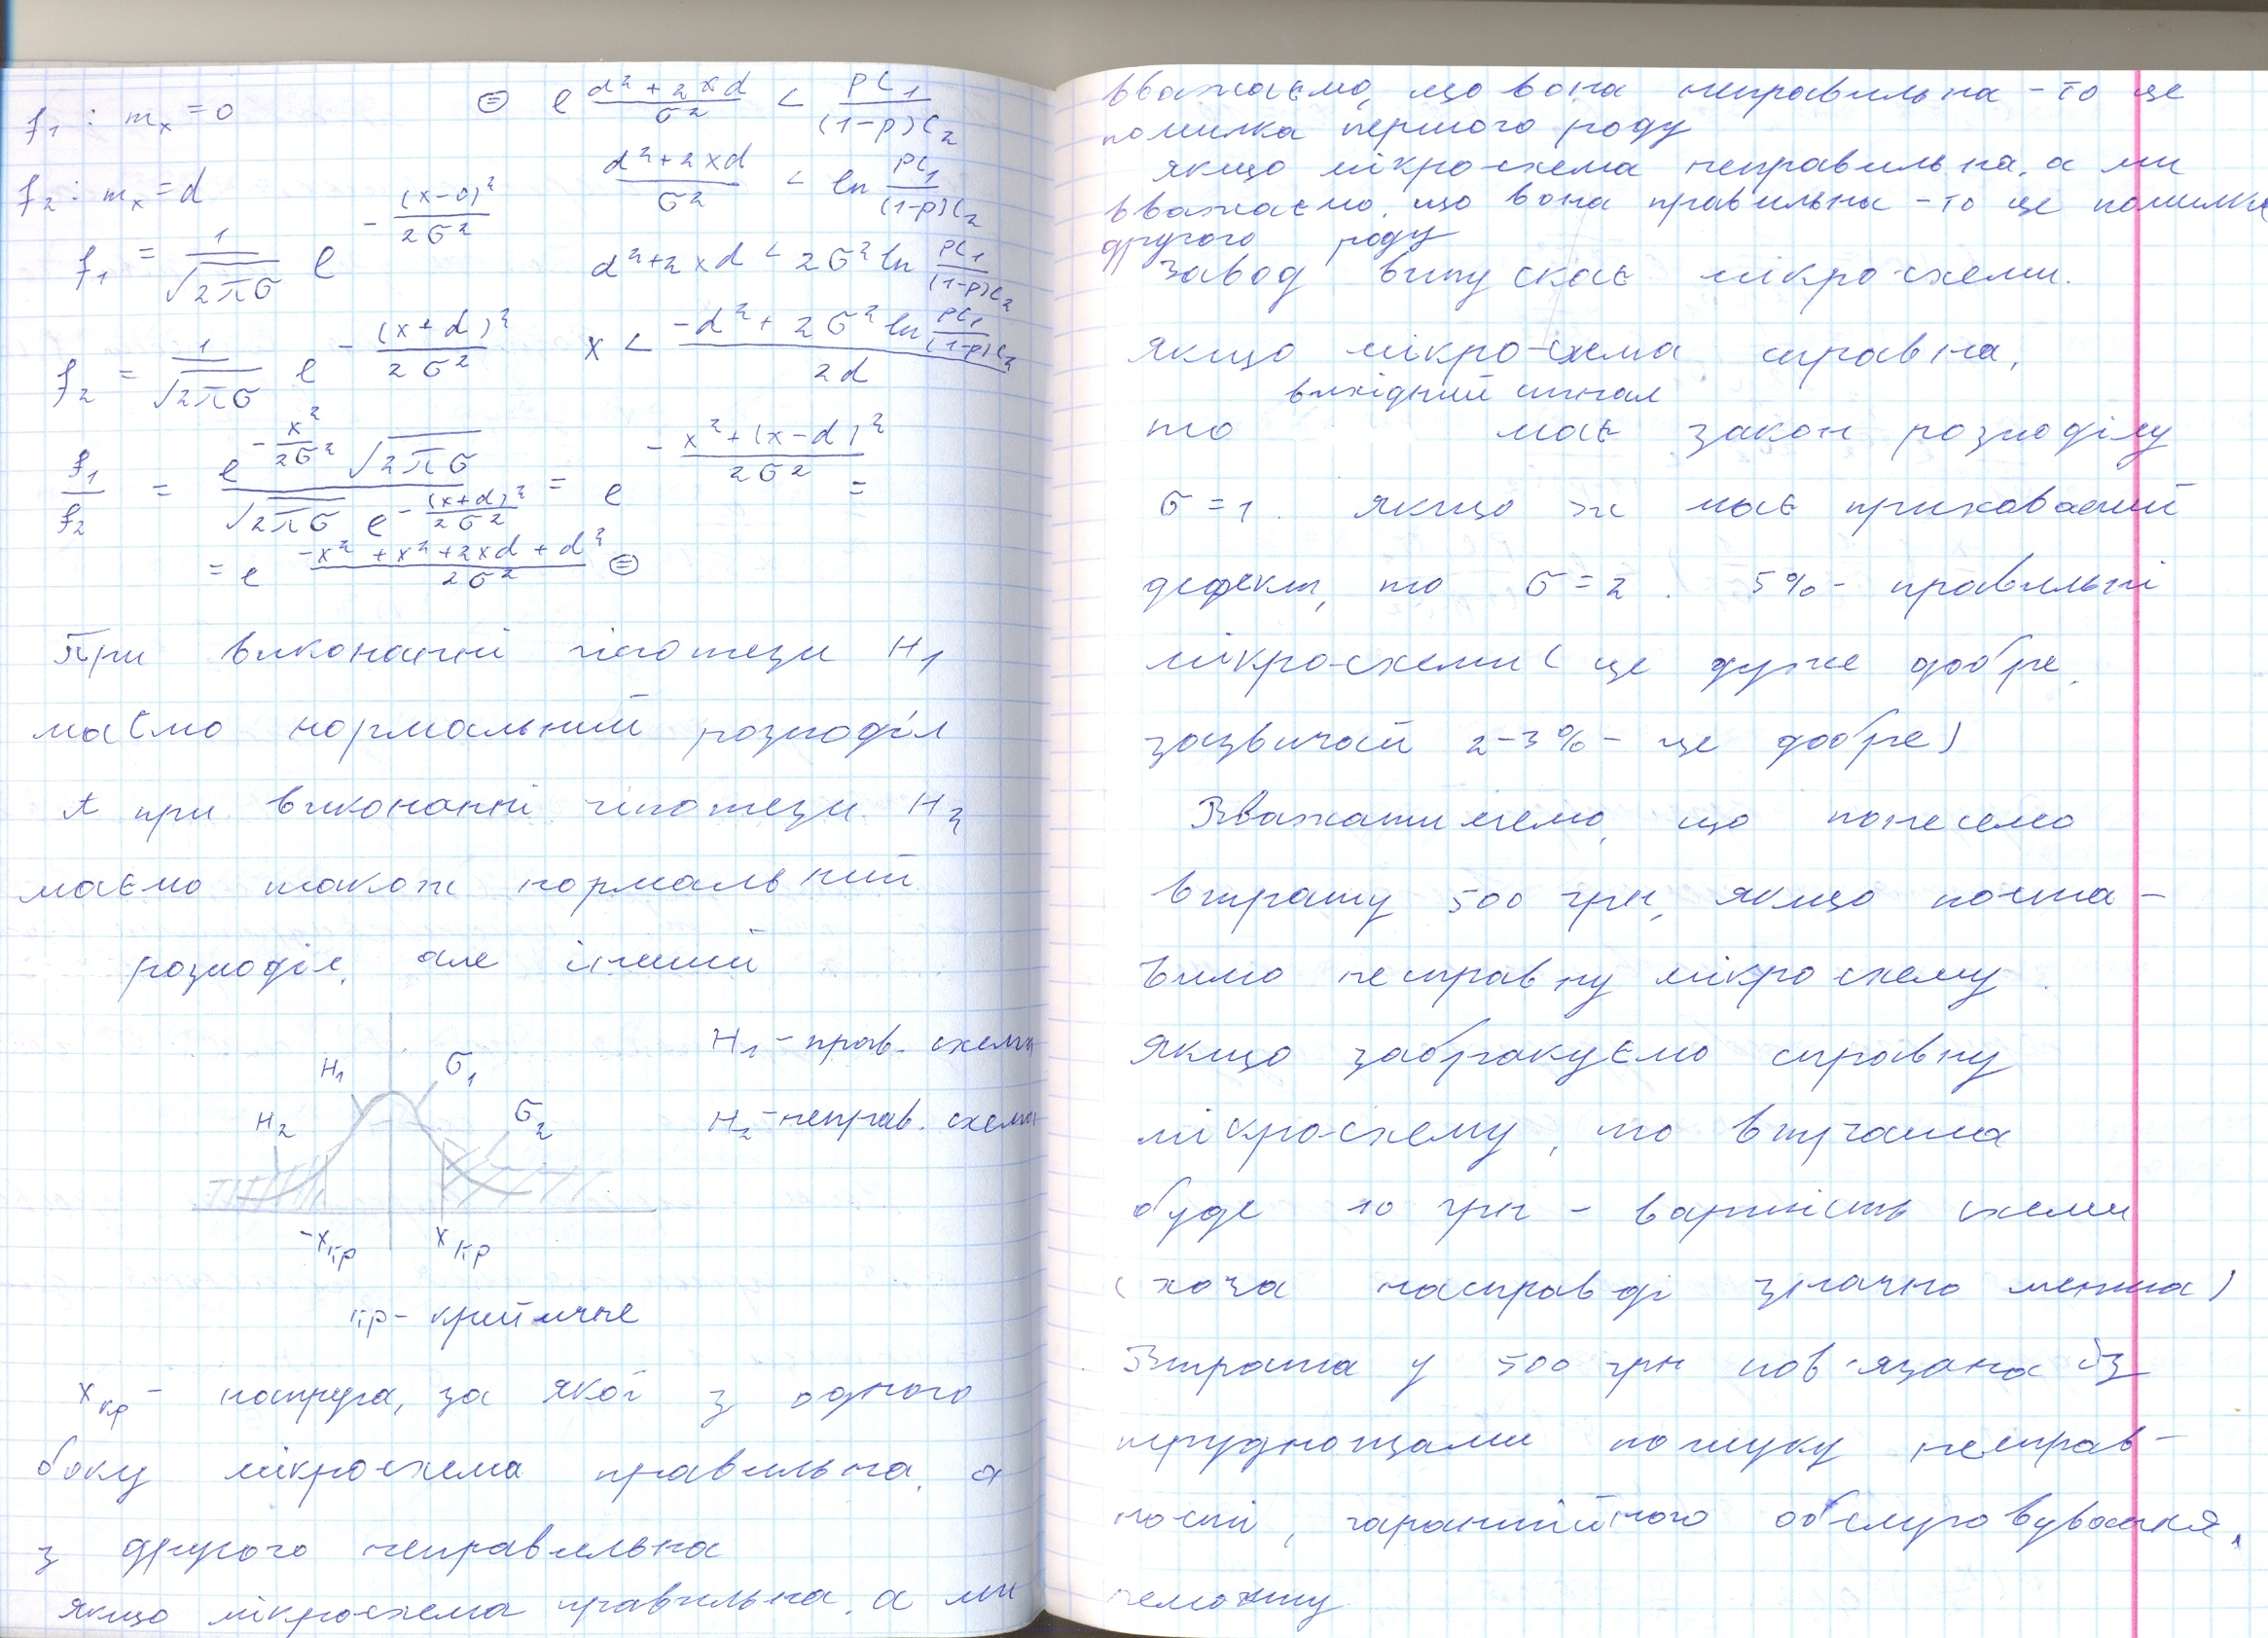 f₁ : mₓ = 0
f₂ : mₓ = d
f₁ = 1/√2πσ e^(-(x-0)²/2σ²)
f₂ = 1/√2πσ e^(-(x+d)²/2σ²)
f₁/f₂ = e^(-x²/2σ²) √2πσ / √2πσ e^(-(x+d)²/2σ²) = e^(-x²+(x-d)²/2σ²) =
= e^(-x²+x²+2xd+d²/2σ²) ⊜
⊜ e^(d²+2xd/σ²) < PC₁/(1-p)C₂
d²+2xd/σ² < ln PC₁/(1-p)C₂
d²+2xd < 2σ² ln PC₁/(1-p)C₂
x < -d²+2σ² ln PC₁/(1-p)C₂ / 2d
При виконанні гіпотези H₁
маємо нормальний розподіл
А при виконанні гіпотези H₂
маємо також нормальний
розподіл, але інший
H₁ σ₁
H₂ σ₂
-xкр xкр
H₁ - прав. схема
H₂ - неправ. схема
кр - критичне
xкр - напруга, за якої з одного
боку мікросхема правильна, а
з другого неправильна
якщо мікросхема правильна, а ми
вважаємо, що вона неправильна - то це
помилка першого роду
якщо мікросхема неправильна, а ми
вважаємо, що вона правильна - то це помилка
другого роду
Завод випускає мікросхеми.
Якщо мікро-схема справна,
вихідний сигнал
то має закон розподілу
σ = 1. Якщо ж має прихований
дефект, то σ = 2. 5% - правильні
мікросхеми (це дуже добре,
зазвичай 2-3% - це добре)
Вважатимемо, що понесемо
втрату 500 грн, якщо поста-
вимо несправну мікросхему.
Якщо забракуємо справну
мікросхему, то втрата
буде 10 грн - вартість схеми
(хоча насправді значно менша)
Втрата у 500 грн пов'язана із
труднощами пошуку несправ-
ності, гарантійного обслуговування,
ремонту